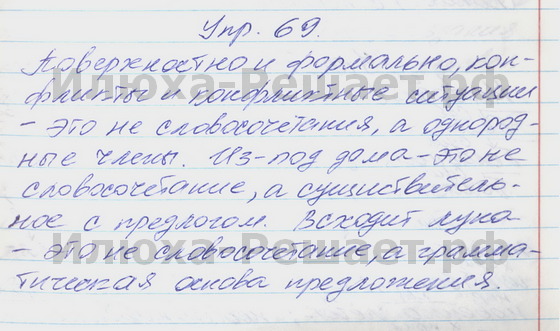 Упр. 69.
Поверхностно и формально, кон-
фликты и конфликтные ситуации
- это не словосочетания, а однород-
ные члены. Из-под дома - это не
словосочетание, а существитель-
ное с предлогом. Всходит луна
- это не словосочетание, а грамма-
тическая основа предложения.
Илюха-Решает.рф
Илюха-Решает.рф